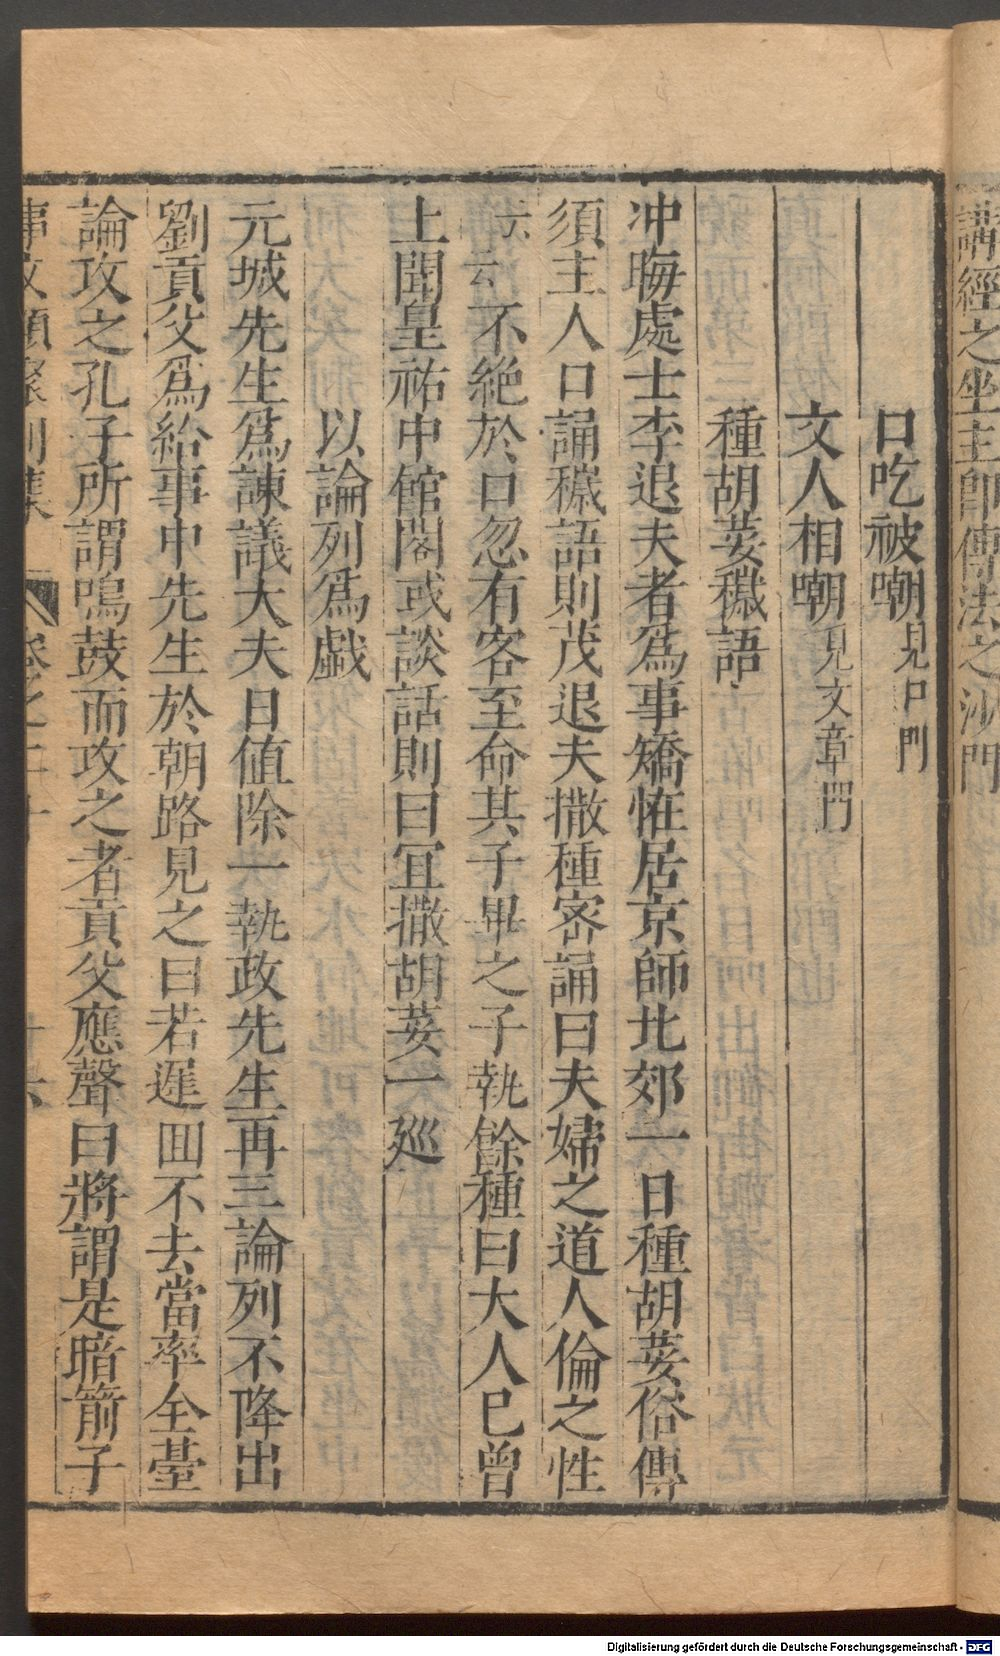 講經之坐主卽傳法之沙門
口吃被嘲見口門
文人相嘲見文章門
種胡荽穢語
冲晦處士李退夫者爲事矯怪居京師北郊一日種胡荽俗傳
須主人口誦穢語則茂退夫撒種密誦曰夫婦之道人倫之性
云云不絕於口忽有客至命其子畢之子執餘種曰大人已曾
上聞皇祐中館閣或談話則曰宜撒胡荽一廵
以論列爲戯
元城先生爲諫議大夫日値除一執政先生再三論列不降出
劉貢父爲給事中先生於朝路見之曰若遲囬不去當率全臺
論攻之孔子所謂鳴鼓而攻之者貢父應聲曰將謂是暗箭子
Digitalisierung gefördert durch die Deutsche Forschungsgemeinschaft - DFG